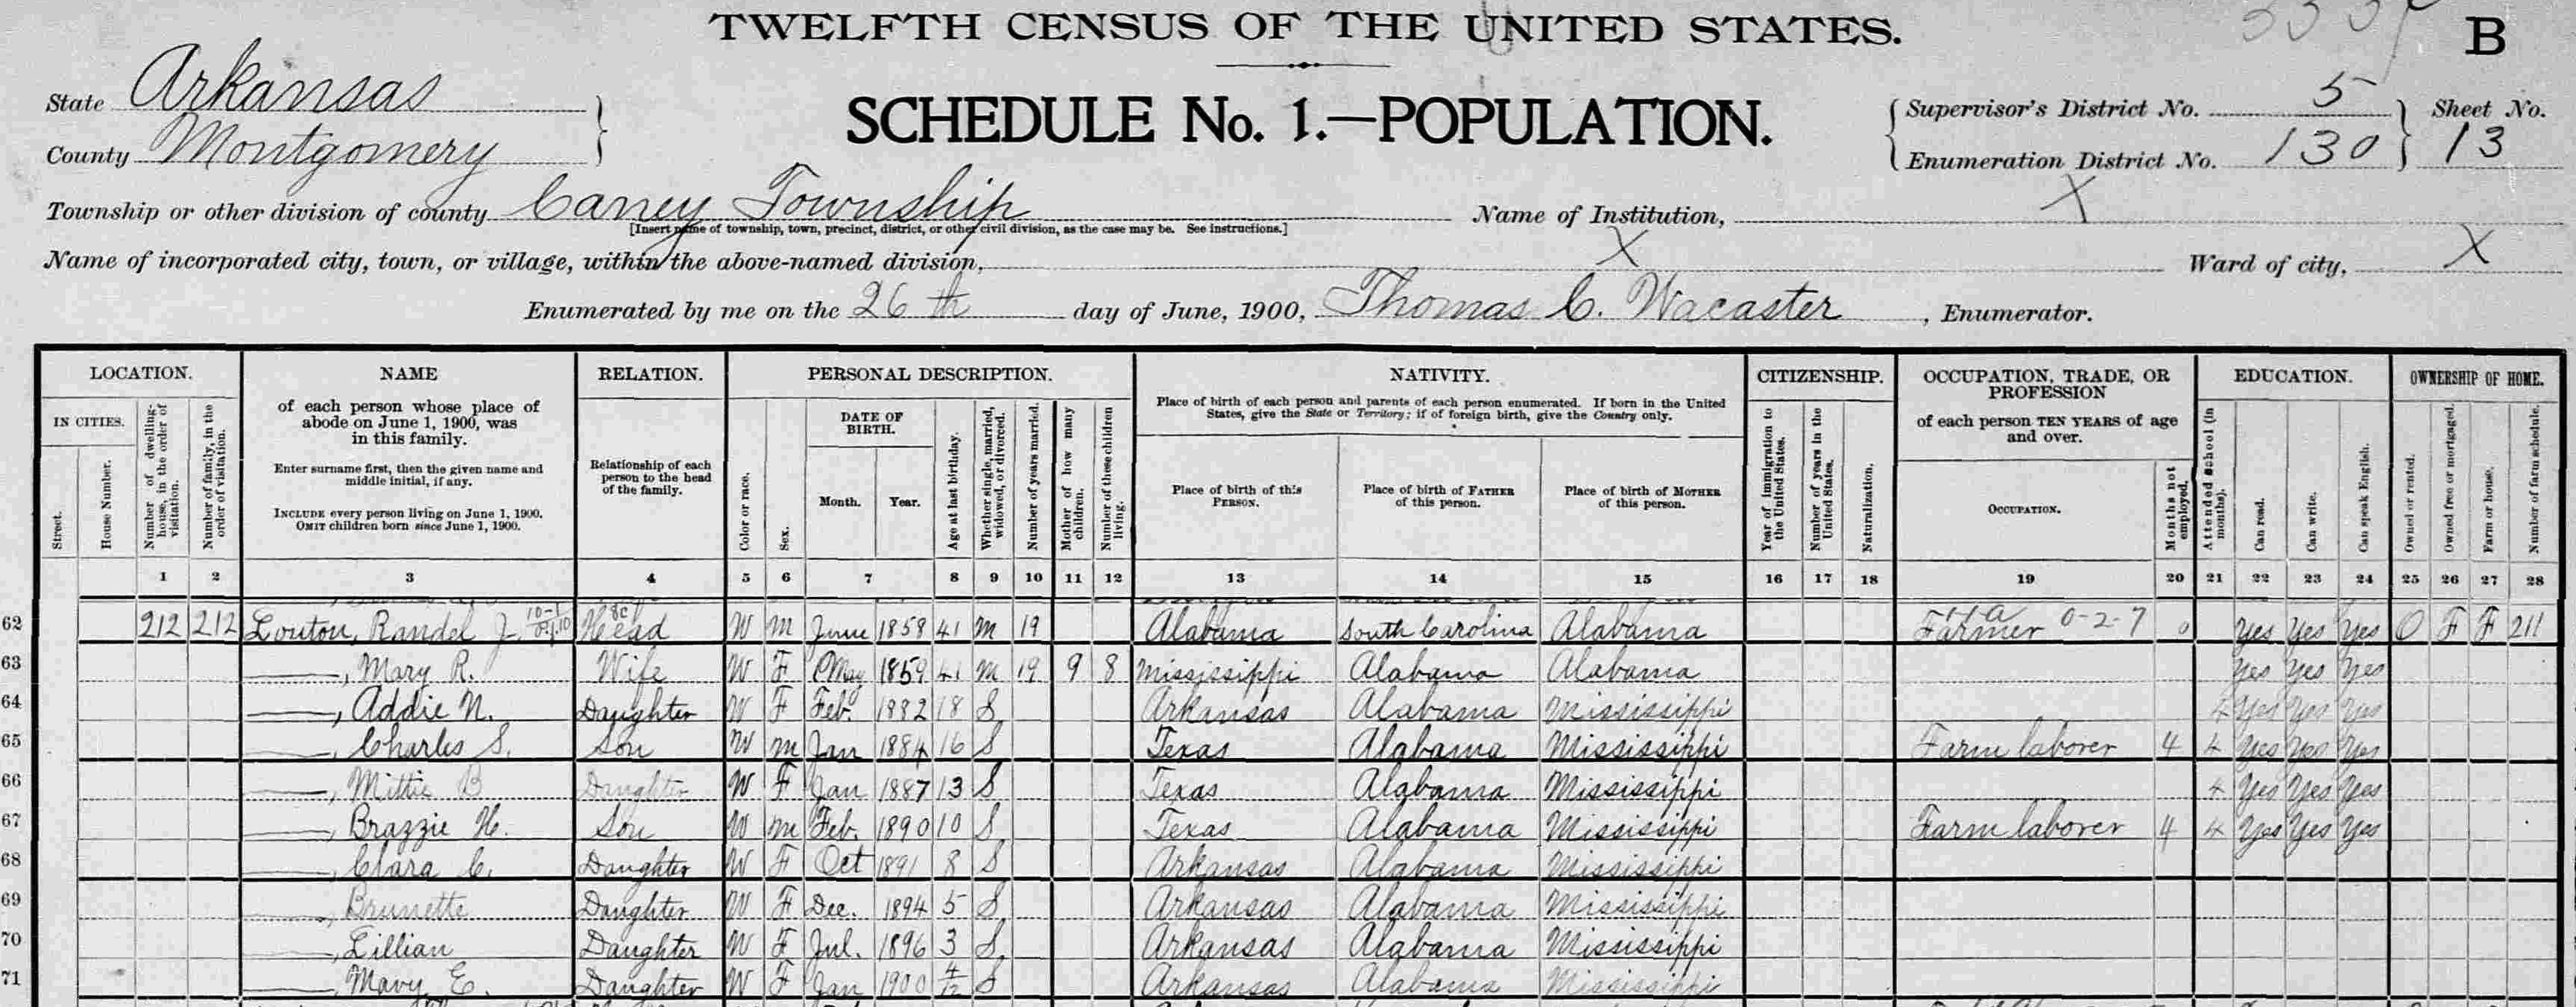 TWELFTH CENSUS OF THE UNITED STATES.
B
State Arkansas
County Montgomery
SCHEDULE No. 1.—POPULATION.
Supervisor's District No. 5 Sheet No.
Enumeration District No. 130 13
Township or other division of county Caney Township Name of Institution, X
[Insert name of township, town, precinct, district, or other civil division, as the case may be. See instructions.]
Name of incorporated city, town, or village, within the above-named division, X Ward of city, X
Enumerated by me on the 26th day of June, 1900, Thomas C. Wacaster, Enumerator.
LOCATION. NAME RELATION. PERSONAL DESCRIPTION. NATIVITY. CITIZENSHIP. OCCUPATION, TRADE, OR PROFESSION EDUCATION. OWNERSHIP OF HOME.
IN CITIES.
Street.
House Number.
Number of dwelling-house, in the order of visitation.
Number of family, in the order of visitation.
of each person whose place of abode on June 1, 1900, was in this family.
Enter surname first, then the given name and middle initial, if any.
INCLUDE every person living on June 1, 1900.
OMIT children born since June 1, 1900.
Relationship of each person to the head of the family.
Color or race.
Sex.
DATE OF BIRTH.
Month. Year.
Age at last birthday.
Whether single, married, widowed, or divorced.
Number of years married.
Mother of how many children.
Number of these children living.
Place of birth of each person and parents of each person enumerated. If born in the United States, give the State or Territory; if of foreign birth, give the Country only.
Place of birth of this PERSON.
Place of birth of FATHER of this person.
Place of birth of MOTHER of this person.
Year of immigration to the United States.
Number of years in the United States.
Naturalization.
of each person TEN YEARS of age and over.
OCCUPATION.
Months not employed.
Attended school (in months).
Can read.
Can write.
Can speak English.
Owned or rented.
Owned free or mortgaged.
Farm or house.
Number of farm schedule.
1 2 3 4 5 6 7 8 9 10 11 12 13 14 15 16 17 18 19 20 21 22 23 24 25 26 27 28
62 212 212 Louton, Randel J. Head W M June 1858 41 M 19 Alabama South Carolina Alabama Farmer 0-2-7 0 Yes Yes Yes O F F 211
63 ———, Mary R. Wife W F May 1859 41 M 19 9 8 Mississippi Alabama Alabama Yes Yes Yes
64 ———, Addie N. Daughter W F Feb. 1882 18 S Arkansas Alabama Mississippi 4 Yes Yes Yes
65 ———, Charles S. Son W M Jan 1884 16 S Texas Alabama Mississippi Farm laborer 4 4 Yes Yes Yes
66 ———, Mittie B Daughter W F Jan 1887 13 S Texas Alabama Mississippi 4 Yes Yes Yes
67 ———, Brazzie H. Son W M Feb. 1890 10 S Texas Alabama Mississippi Farm laborer 4 4 Yes Yes Yes
68 ———, Clara C. Daughter W F Oct 1891 8 S Arkansas Alabama Mississippi
69 ———, Brunette Daughter W F Dec. 1894 5 S Arkansas Alabama Mississippi
70 ———, Lillian Daughter W F Jul. 1896 3 S Arkansas Alabama Mississippi
71 ———, Mary E. Daughter W F Jan 1900 4/12 S Arkansas Alabama Mississippi